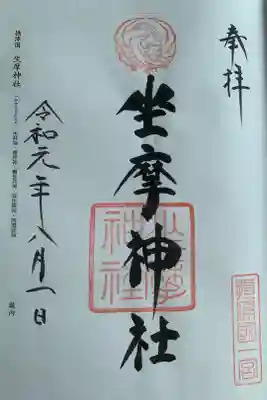 奉拝
坐摩神社
令和元年八月一日
摂津国 坐摩神社
摂津国一宮
坐摩
神社